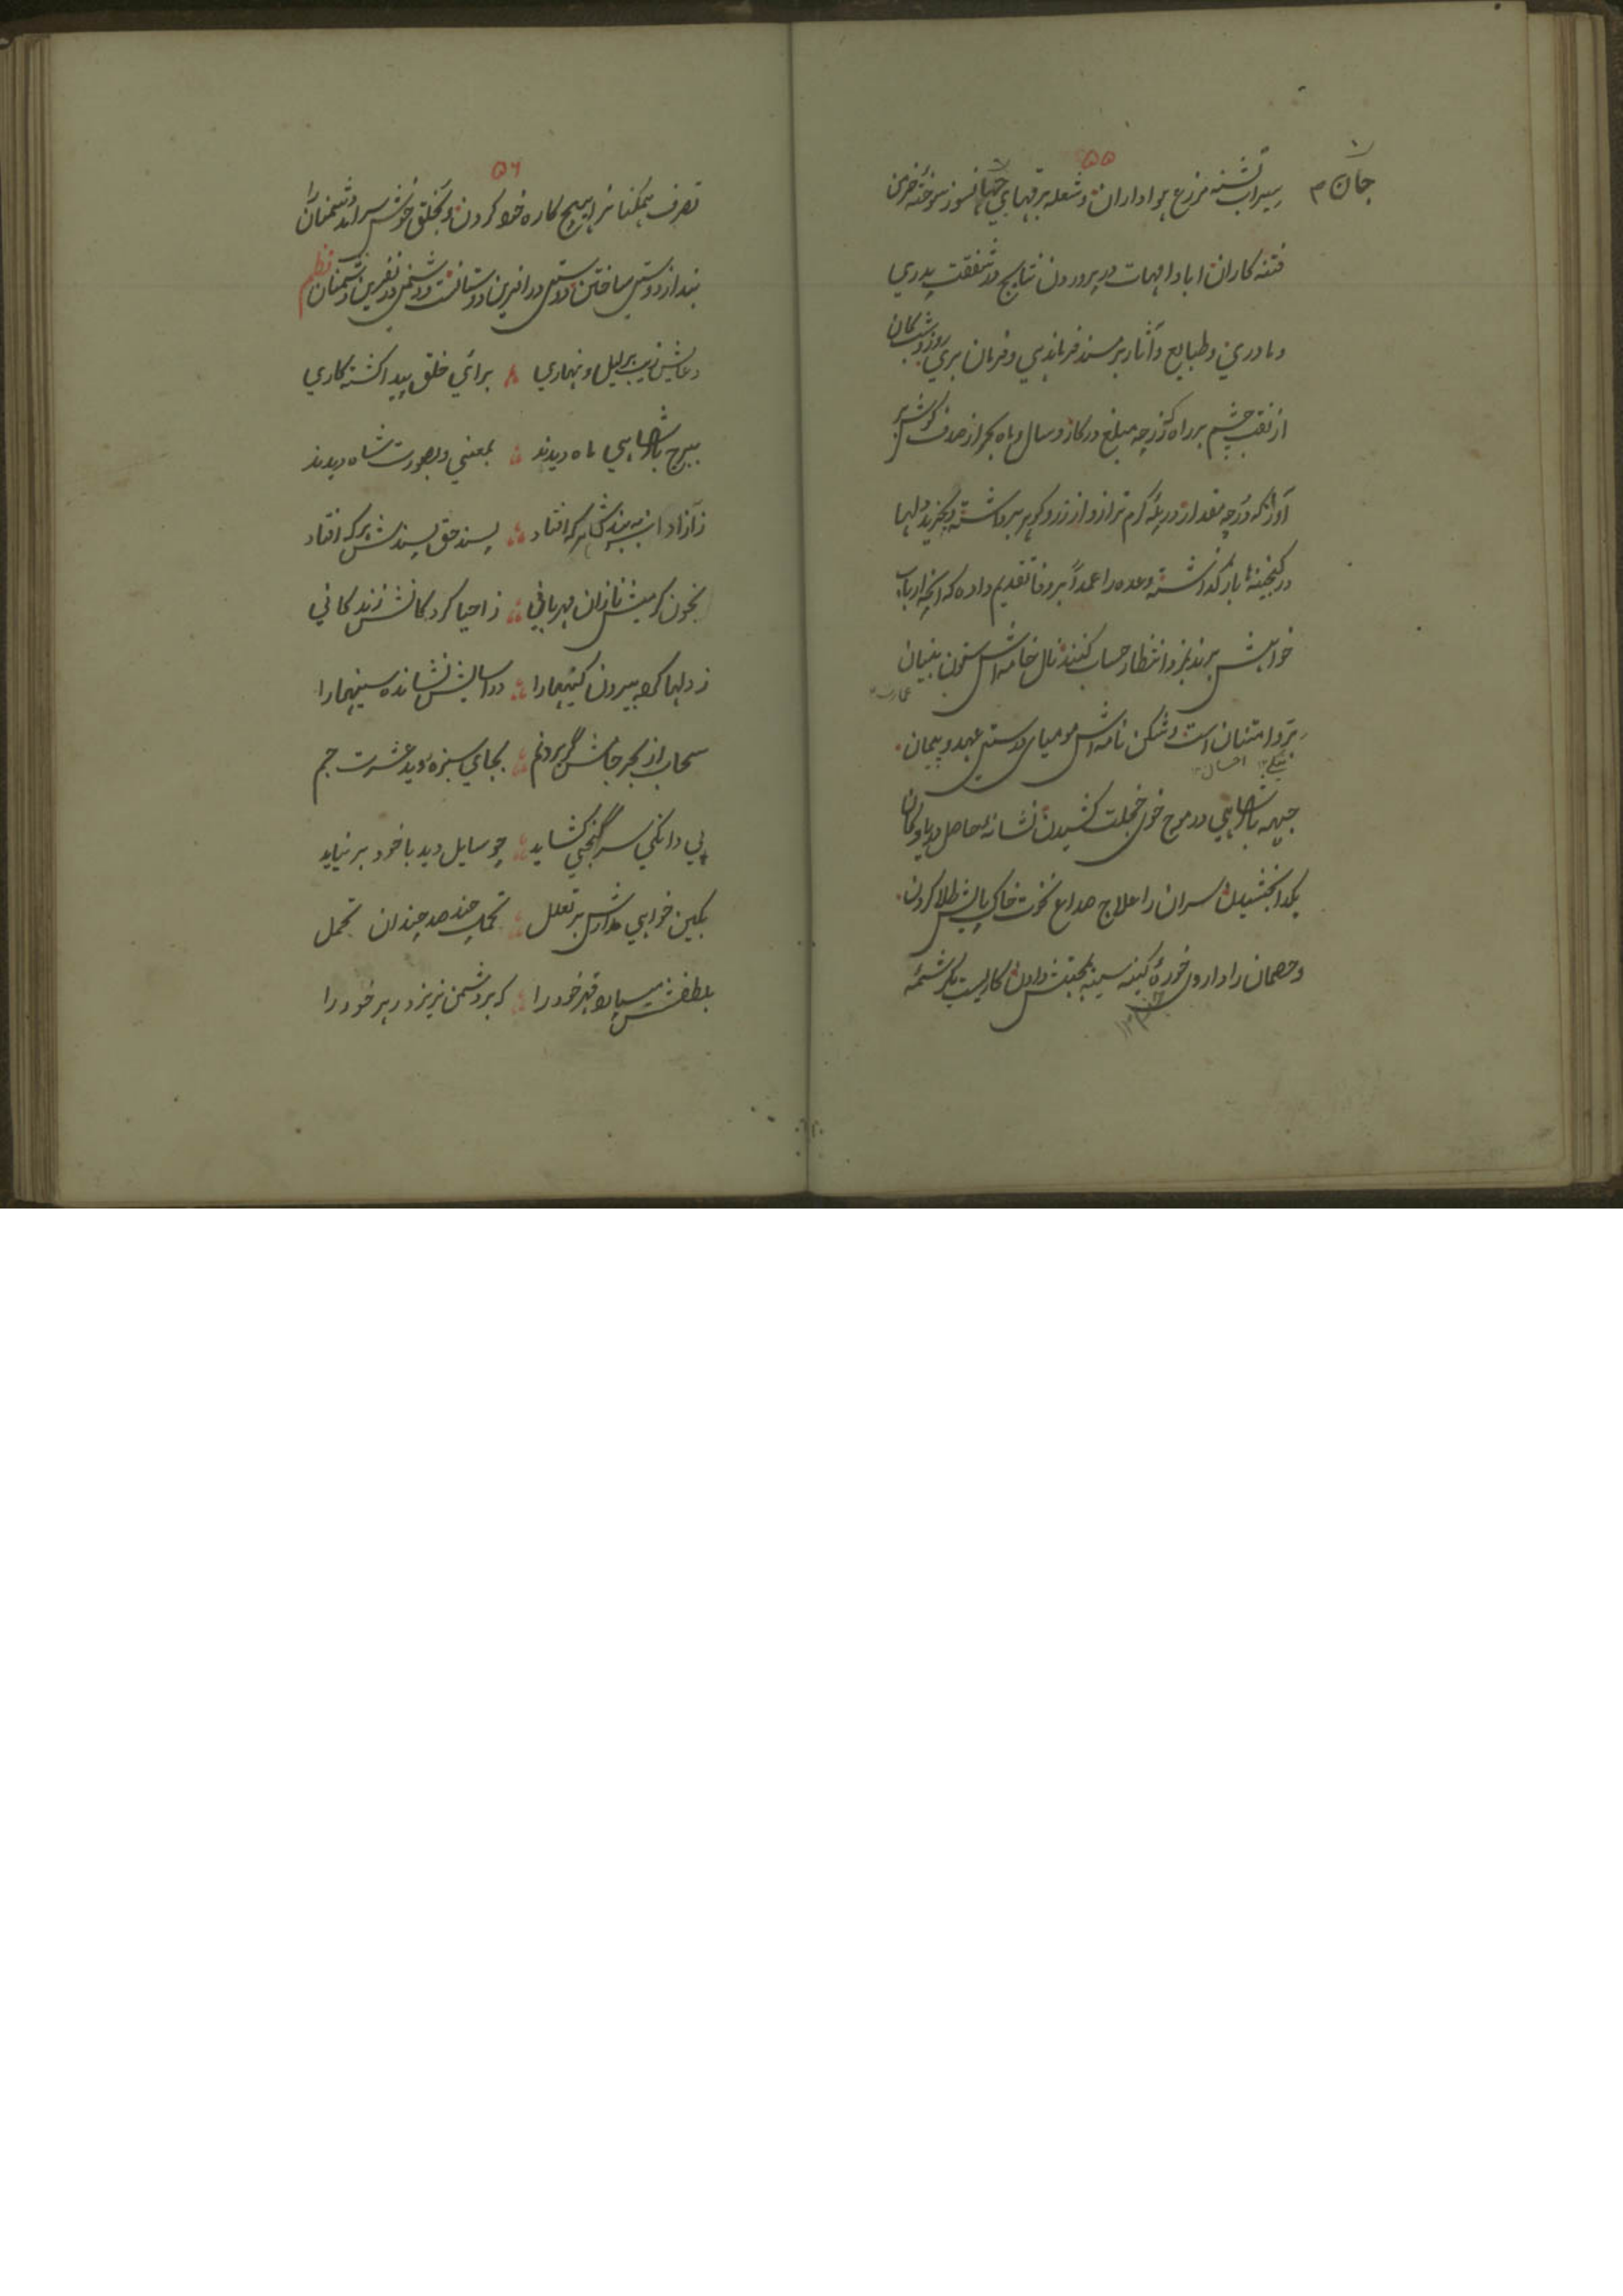 ۵۵
جان
سیراب تشنه مزرع هواداران و شعله برقهای جهانسوز سوخته خرمن
فتنه کاران ابا و امهات در پرورون نتایج در شفقت پدری
و مادری و طبایع و آثار بر مسند فرماندهی و فرمان بری روز و شب کان
از نقب چشم بر راه که زر چه مبلغ در کار و سال و ماه بحر از صدف گوش بر
آواز که در چه مقدار در پله کرم ترازو از زر و گوهر برداشته و بخرید دلها
در گنجینها باز گذاشته وعده را عمداً بر وفا تقدیم داده که آنچه ارباب
خواهش برند بمزد انتظار حساب کنند نال خامه اش ستون بنیان
عمارت
بر و امتنان است و شکن نامه اش مومیای درستی عهد و پیمان
نیکی احسان
جبهه پادشاهی در موج خوی خجلت کشیدن نشانه حاصل دریا و کان
یکدا بخشیدن سران را علاج صداع نخوت خاک پایش طلا کردن
و خصمان را داروی خوره کینه سینه بجنبش دادن کاریست یک کرشمه
۵۶
تصرف همکنانرا هیچ کاره خود کردن و بخلق خوش سر اند دشمنان را
بند از دوستی ساختن دوستی در آفرین دوستانست و دشمن در نفرین دشمنان نظم
دعایش زیب هر لیل و نهاری برای خلق پیدا کشته کاری
ببرج پادشاهی ماه دیدند بمعنی و بصورت شاه دیدند
ز آزادان به بندش هر که افتاد پسند حق پسندش هر که افتاد
بخون گرمیش نازان مهربانی ز احیا کردگانش زندگانی
ز دلها کرده بیرون کینها را در آسایش نشانده سینها را
سحاب از بحر جانش گر برد نم بجای سبزه روید عشرت جم
پی دانکی سر گنجی کشاید چو سایل دید با خود بر نیاید
بکین خواهی مدارش بر تعلل تحمل چند صد چندان تحمل
بلطفش می سپارد قهر خود را که بر دشمن نریزد زهر خود را